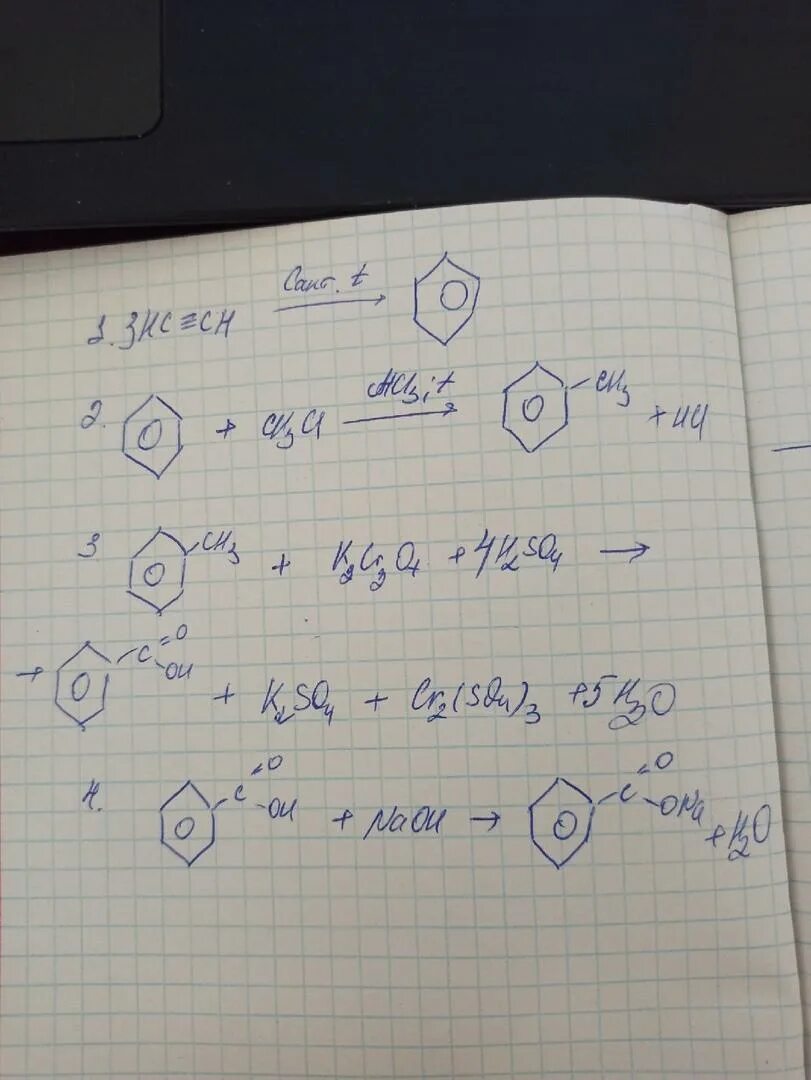 1. 3HC≡CH Cакт. t →
2. + CH₃Cl AlCl₃, t → CH₃ + HCl
3 CH₃ + K₂Cr₂O₇ + 4H₂SO₄ →
→ C =O OH + K₂SO₄ + Cr₂(SO₄)₃ + 5H₂O
4. C =O OH + NaOH → C =O ONa + H₂O